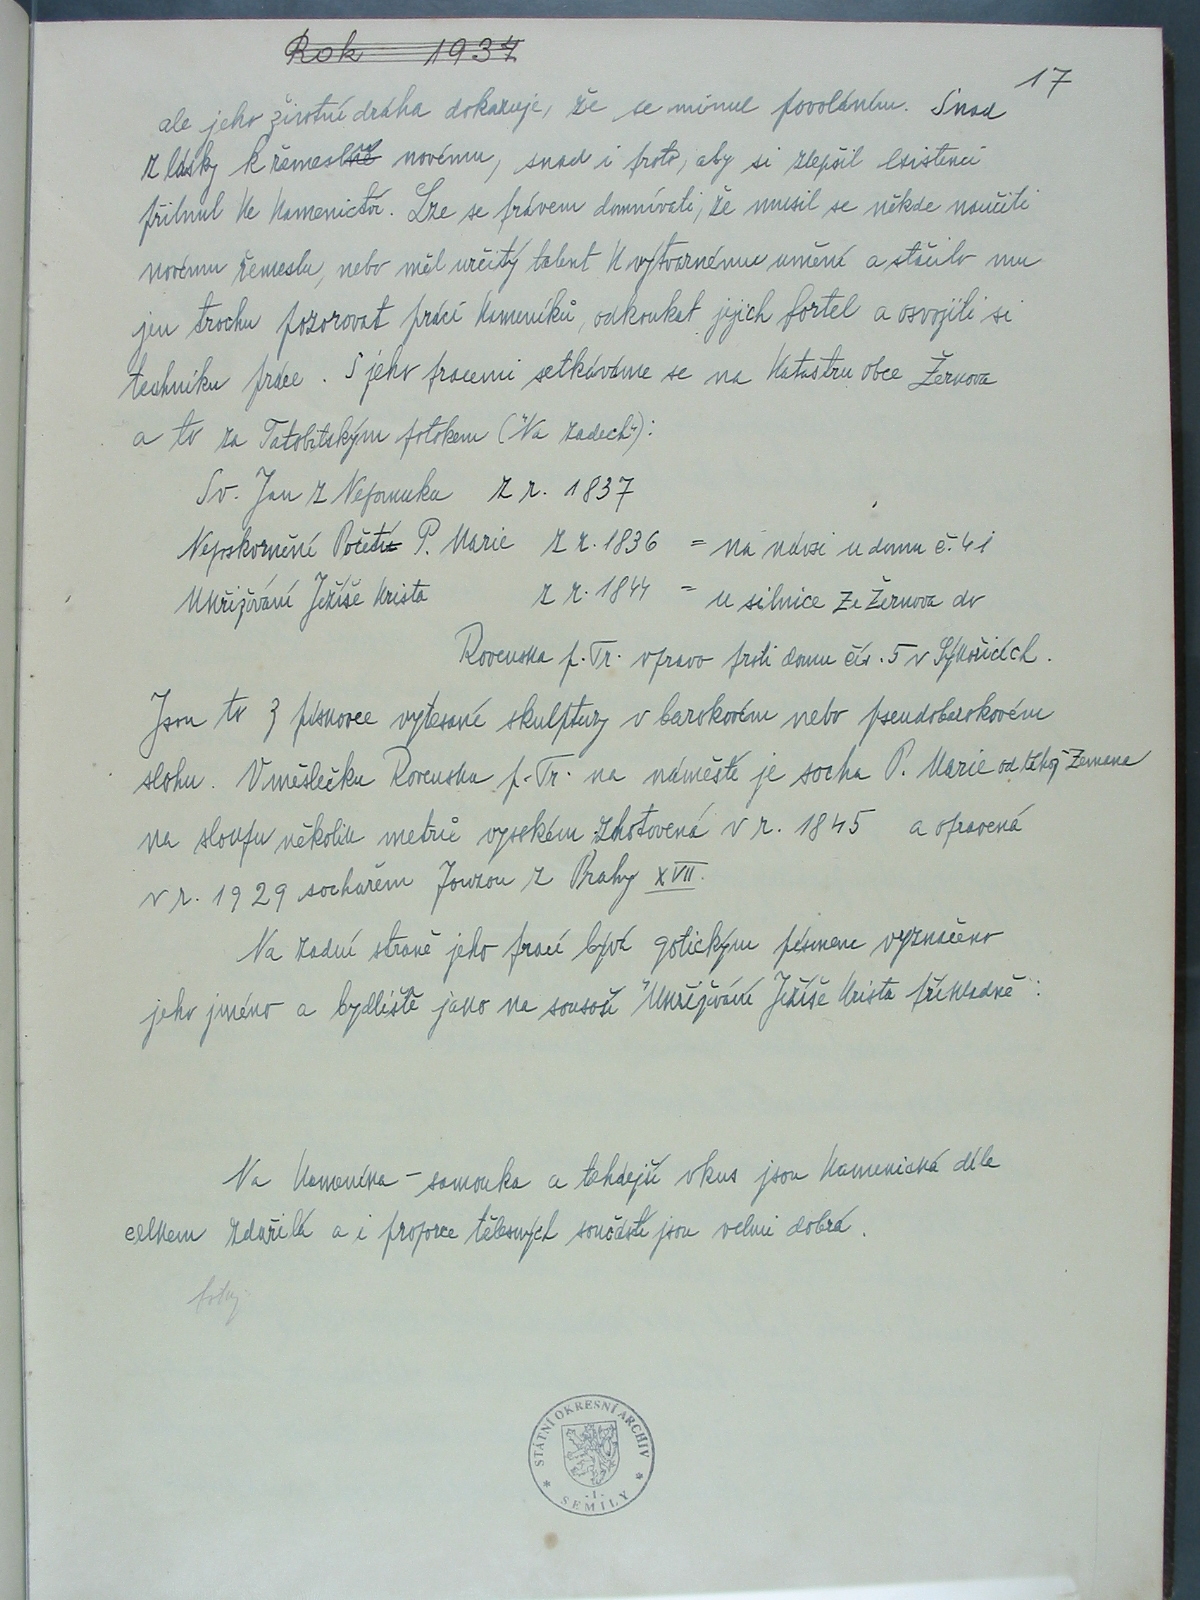 Rok 1937
17
ale jeho životní dráha dokazuje, že se minul povoláním. Snad
z lásky k řemeslu novému, snad i proto, aby si zlepšil existenci
přilnul ke kamenictví. Lze se právem domnívati, že musil se někde naučiti
novému řemeslu, nebo měl určitý talent k výtvarnému umění a stačilo mu
jen trochu pozorovat práci kameníků, odkoukat jejich fortel a osvojiti si
techniku práce. S jeho pracemi setkáváme se na katastru obce Žernova
a to za Tatobitským potokem ("Na zadech"):
Sv. Jan z Nepomuku z r. 1837
Neposkvrnění Početí P. Marie z r. 1836 = na návsi u domu č. 41
Ukřižování Ježíše Krista z r. 1844 = u silnice ze Žernova do
Rovenska p. Tr. vpravo proti domu čís. 5 v Sýkořicích.
Jsou to 3 pískovce vytesané skulptury v barokovém nebo pseudobarokovém
slohu. V městečku Rovensku p. Tr. na náměstí je socha P. Marie od téhož Zemana
na sloupu několik metrů vysokém zhotovená v r. 1845 a opravená
v r. 1929 sochařem Jouzou z Prahy XVII.
Na zadní straně jeho prací bývá gotickým písmem vyznačeno
jeho jméno a bydliště jako na sousoší "Ukřižování Ježíše Krista příkladně":
Na kameníka - samouka a tehdejší vkus jsou kamenická díla
celkem zdařilá a i proporce tělesných součástí jsou velmi dobrá.
foto
STÁTNÍ OKRESNÍ ARCHIV
-1-
* SEMILY *